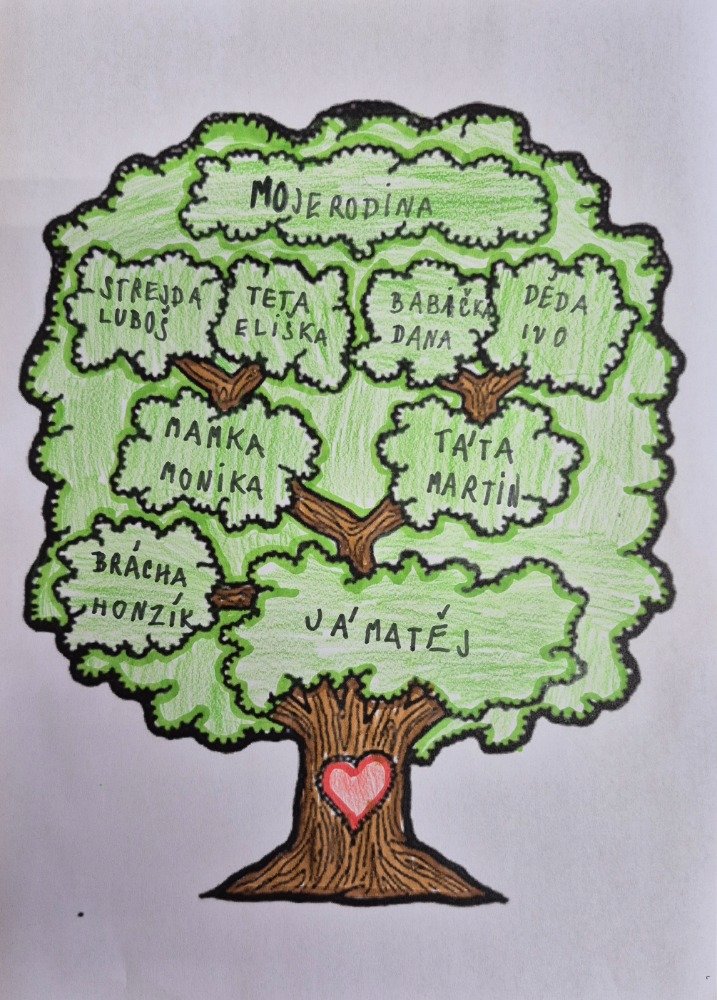 MOJE RODINA
STREJDA
LUBOŠ
TETA
ELIŠKA
BABIČKA
DANA
DĚDA
IVO
MAMKA
MONIKA
TÁTA
MARTIN
BRÁCHA
HONZÍK
JÁ MATĚJ